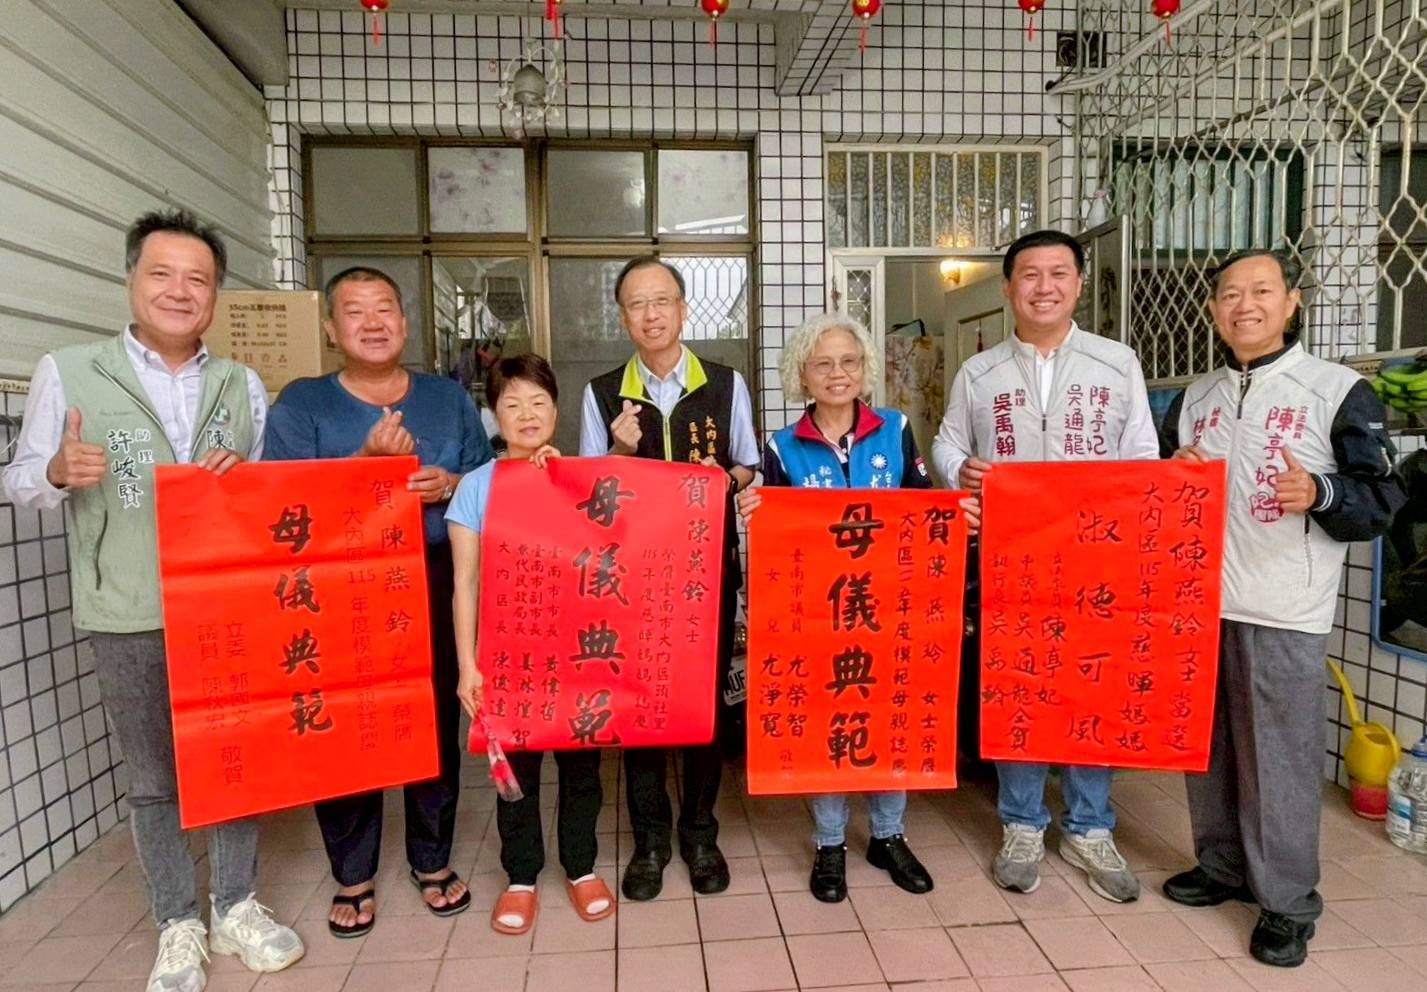 助理
許峻賢
陳
賀 陳燕鈴 女士 榮膺
大內區115年度模範母親誌慶
母儀典範
立委 郭國文
議員 陳秋宏
敬賀
賀 陳燕鈴 女士
榮膺臺南市大內區頭社里
115年度慈暉媽媽誌慶
母儀典範
臺南市市長 黃偉哲
臺南市副市長
兼代民政局長 姜淋煌
大內區長 陳俊達
賀
大內區
區長 陳
賀 陳燕玲 女士榮膺
大內區一一五年度模範母親誌慶
母儀典範
臺南市議員 尤榮智
女兒 尤淨寬
敬賀
秘書
楊
助理
吳禹翰
陳亭妃
吳通龍
賀陳燕鈴女士當選
大內區115年度慈暉媽媽
淑德可風
立法委員 陳亭妃
市議員 吳通龍
執行長 吳禹翰
仝賀
立法委員
陳亭妃
秘書
林